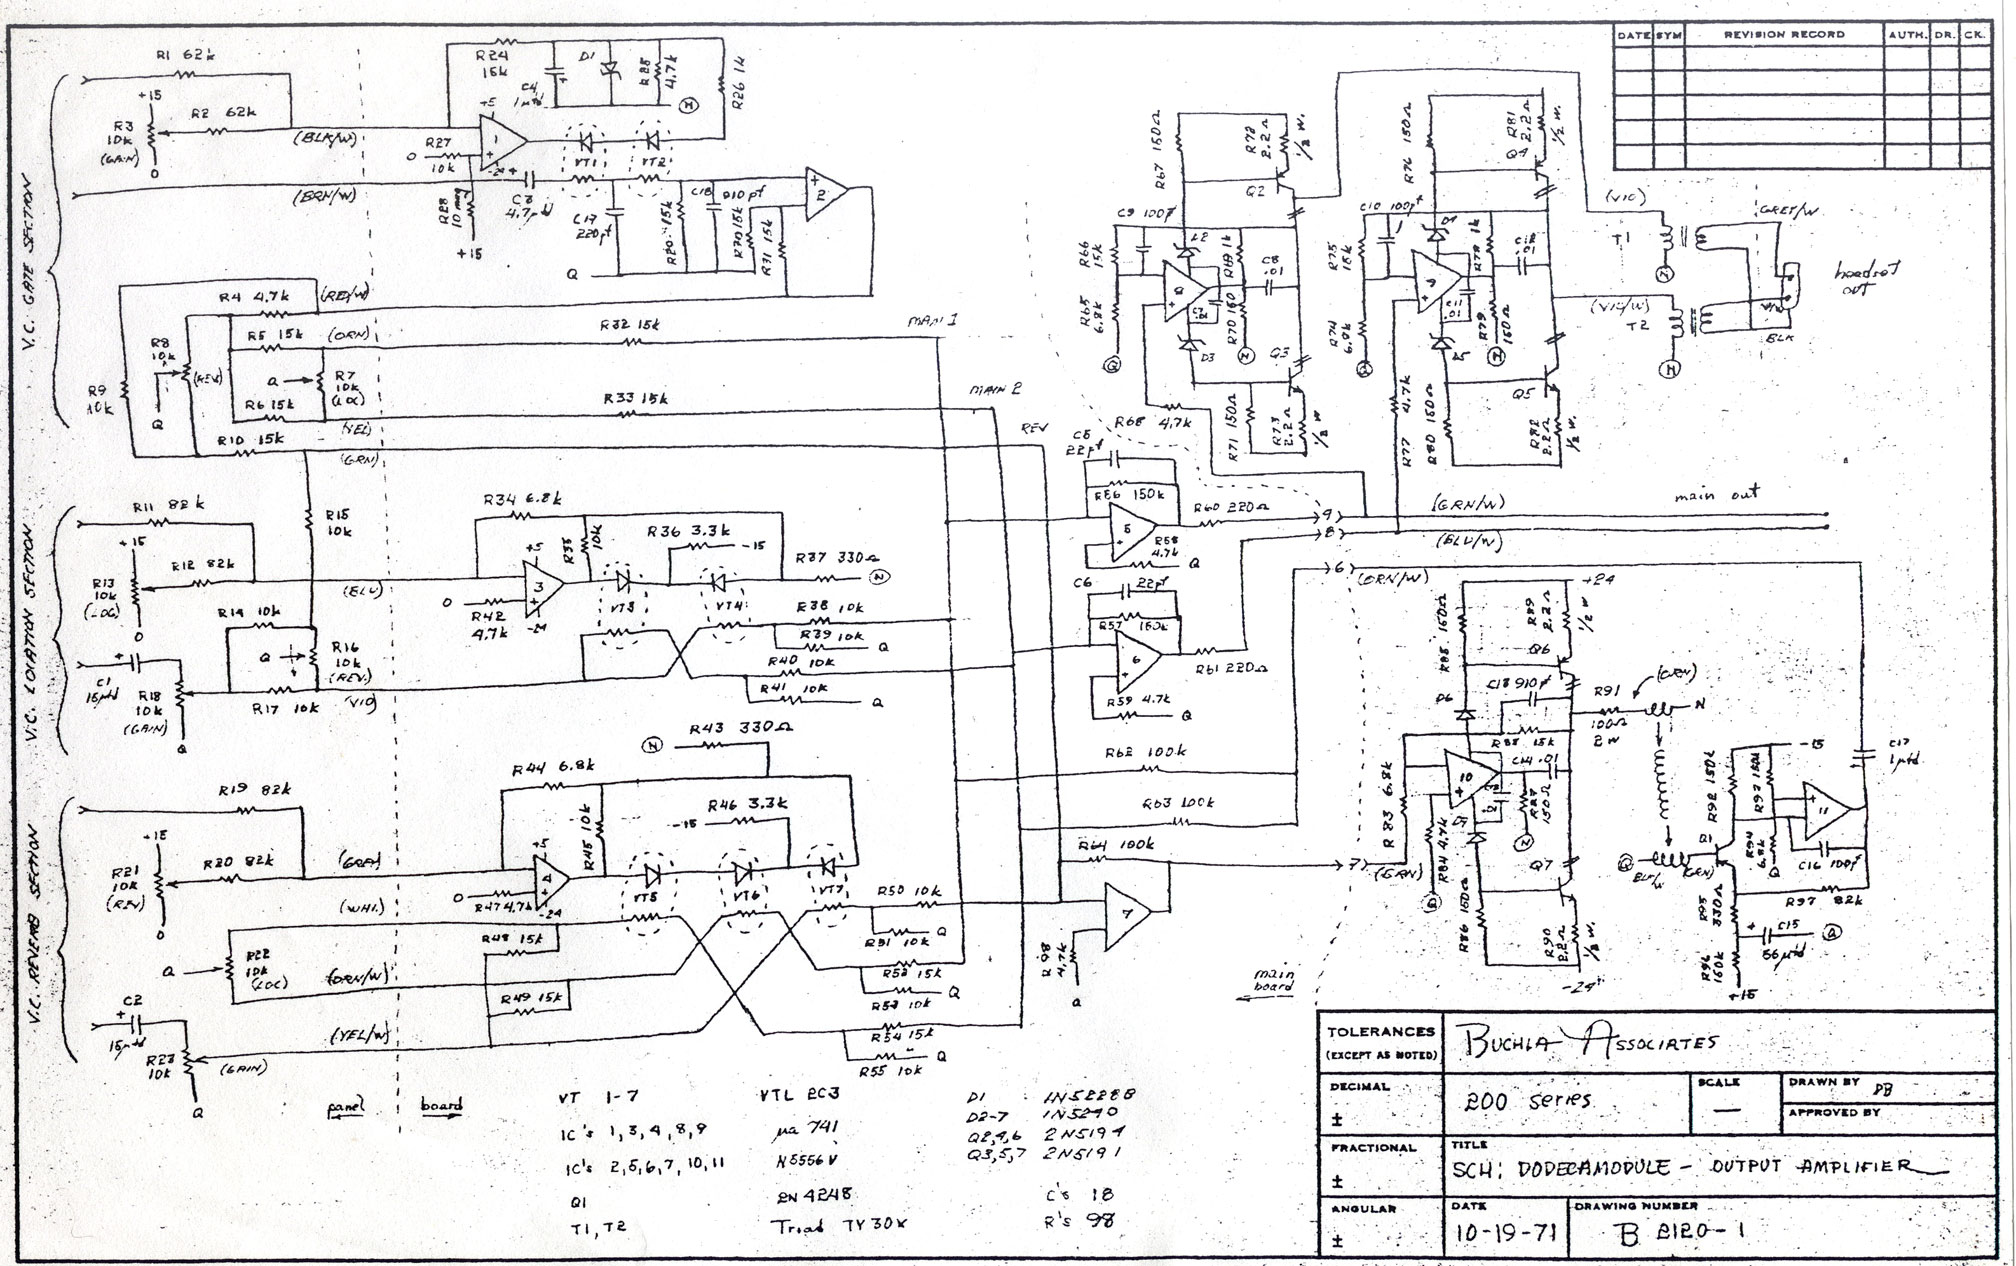 DATE SYM REVISION RECORD AUTH. DR. CK.
V.C. GATE SECTION
R1 62k
+15
R3
10k
(GAIN)
0
R2 62k
(BLK/W)
(BRN/W)
R24
15k
C4
1µfd
D1
R25
4.7k
R26 1k
N
+5
1
-24
R27
10k
0
R28
10 meg
+15
C3
4.7µfd
VT1
VT2
C19
220pf
C18
910pf
R31 15k
2
Q
R4 4.7k
(RED/W)
R5 15k
(ORN)
R8
10k
(REV)
R9
10k
Q
Q
R7
10k
(LOC)
R6 15k
(YEL)
R10 15k
(GRN)
R32 15k
MAIN 1
R33 15k
MAIN 2
REV
V.C. LOCATION SECTION
R11 82k
+15
R13
10k
(LOC)
0
R12 82k
R15
10k
(BLU)
R14 10k
Q
R16
10k
(REV.)
R17 10k
(VIO)
C1
15µfd
R18
10k
(GAIN)
Q
R34 6.8k
R35
10k
R36 3.3k
-15
R37 330Ω
N
+5
3
-24
0
R42
4.7k
VT3
VT4
R38 10k
R39 10k
Q
R40 10k
R41 10k
Q
V.C. REVERB SECTION
R19 82k
+15
R21
10k
(REV)
0
R20 82k
(GRY)
(WHI.)
Q
R22
10k
(LOC)
(ORN/W)
C2
15µfd
R23
10k
(GAIN)
(YEL/W)
Q
N
R43 330Ω
R44 6.8k
R45 10k
R46 3.3k
-15
+5
4
-24
0
R47 4.7k
VT5
VT6
VT7
R48 15k
R49 15k
R50 10k
R51 10k
Q
R52 15k
R53 10k
Q
R54 15k
R55 10k
Q
panel
board
R67 150Ω
R72
2.2Ω
1/2 W.
Q2
C9 100pf
R66
15k
R65
6.8k
Q
D2
8
R69 1k
C8
.01
R70 150
N
D3
Q3
R68 4.7k
R71 150Ω
R73
2.2Ω
1/2 W
R76 150Ω
R81
2.2Ω
1/2 W.
Q4
C10 100pf
R75
15k
R74
6.8k
9
R78 1k
C11
.01
R79
150Ω
N
D5
Q5
R77 4.7k
R80 150Ω
R82
2.2Ω
1/2 W.
(VIO)
T1
N
(VIO/W)
T2
N
GREY/W
BLK
headset
out
C5
22pf
R56 150k
5
R58
4.7k
Q
R60 220Ω
9
8
(GRN/W)
(BLU/W)
main out
C6
22pf
R57 150k
6
R59 4.7k
Q
R61 220Ω
6
(ORN/W)
R62 100k
R63 100k
R64 100k
7
R98
4.7k
Q
7
(GRN)
main
board
+24
R85 150Ω
R89
2.2Ω
1/2 W
Q6
D6
C13 910pf
R88 15k
R91
100Ω
2 W
(ORN)
N
10
C14 .01
R87
150Ω
N
R83 6.8k
R84 4.7k
Q
D7
Q7
R86 150Ω
R90
2.2Ω
1/2 W.
-24
Q
BLK/W
(GRN)
Q1
R92 150k
R93 150k
-15
R94
6.8k
Q
11
C17
1µfd
C16 100pf
R97 82k
R95
330Ω
C15
56µfd
Q
R96
150k
+15
VT 1-7 VTL 2C3
IC's 1,3,4,8,9 µa 741
IC's 2,5,6,7,10,11 N5556V
Q1 2N4248
T1, T2 Triad TY30X
D1 1N5228B
D2-7 1N5240
Q2,4,6 2N5194
Q3,5,7 2N5191
C's 18
R's 98
TOLERANCES
(EXCEPT AS NOTED)
BUCHLA ASSOCIATES
DECIMAL
±
200 series
SCALE
—
DRAWN BY DB
APPROVED BY
FRACTIONAL
±
TITLE
SCH: DODECAMODULE - OUTPUT AMPLIFIER
ANGULAR
±
DATE
10-19-71
DRAWING NUMBER
B 2120-1